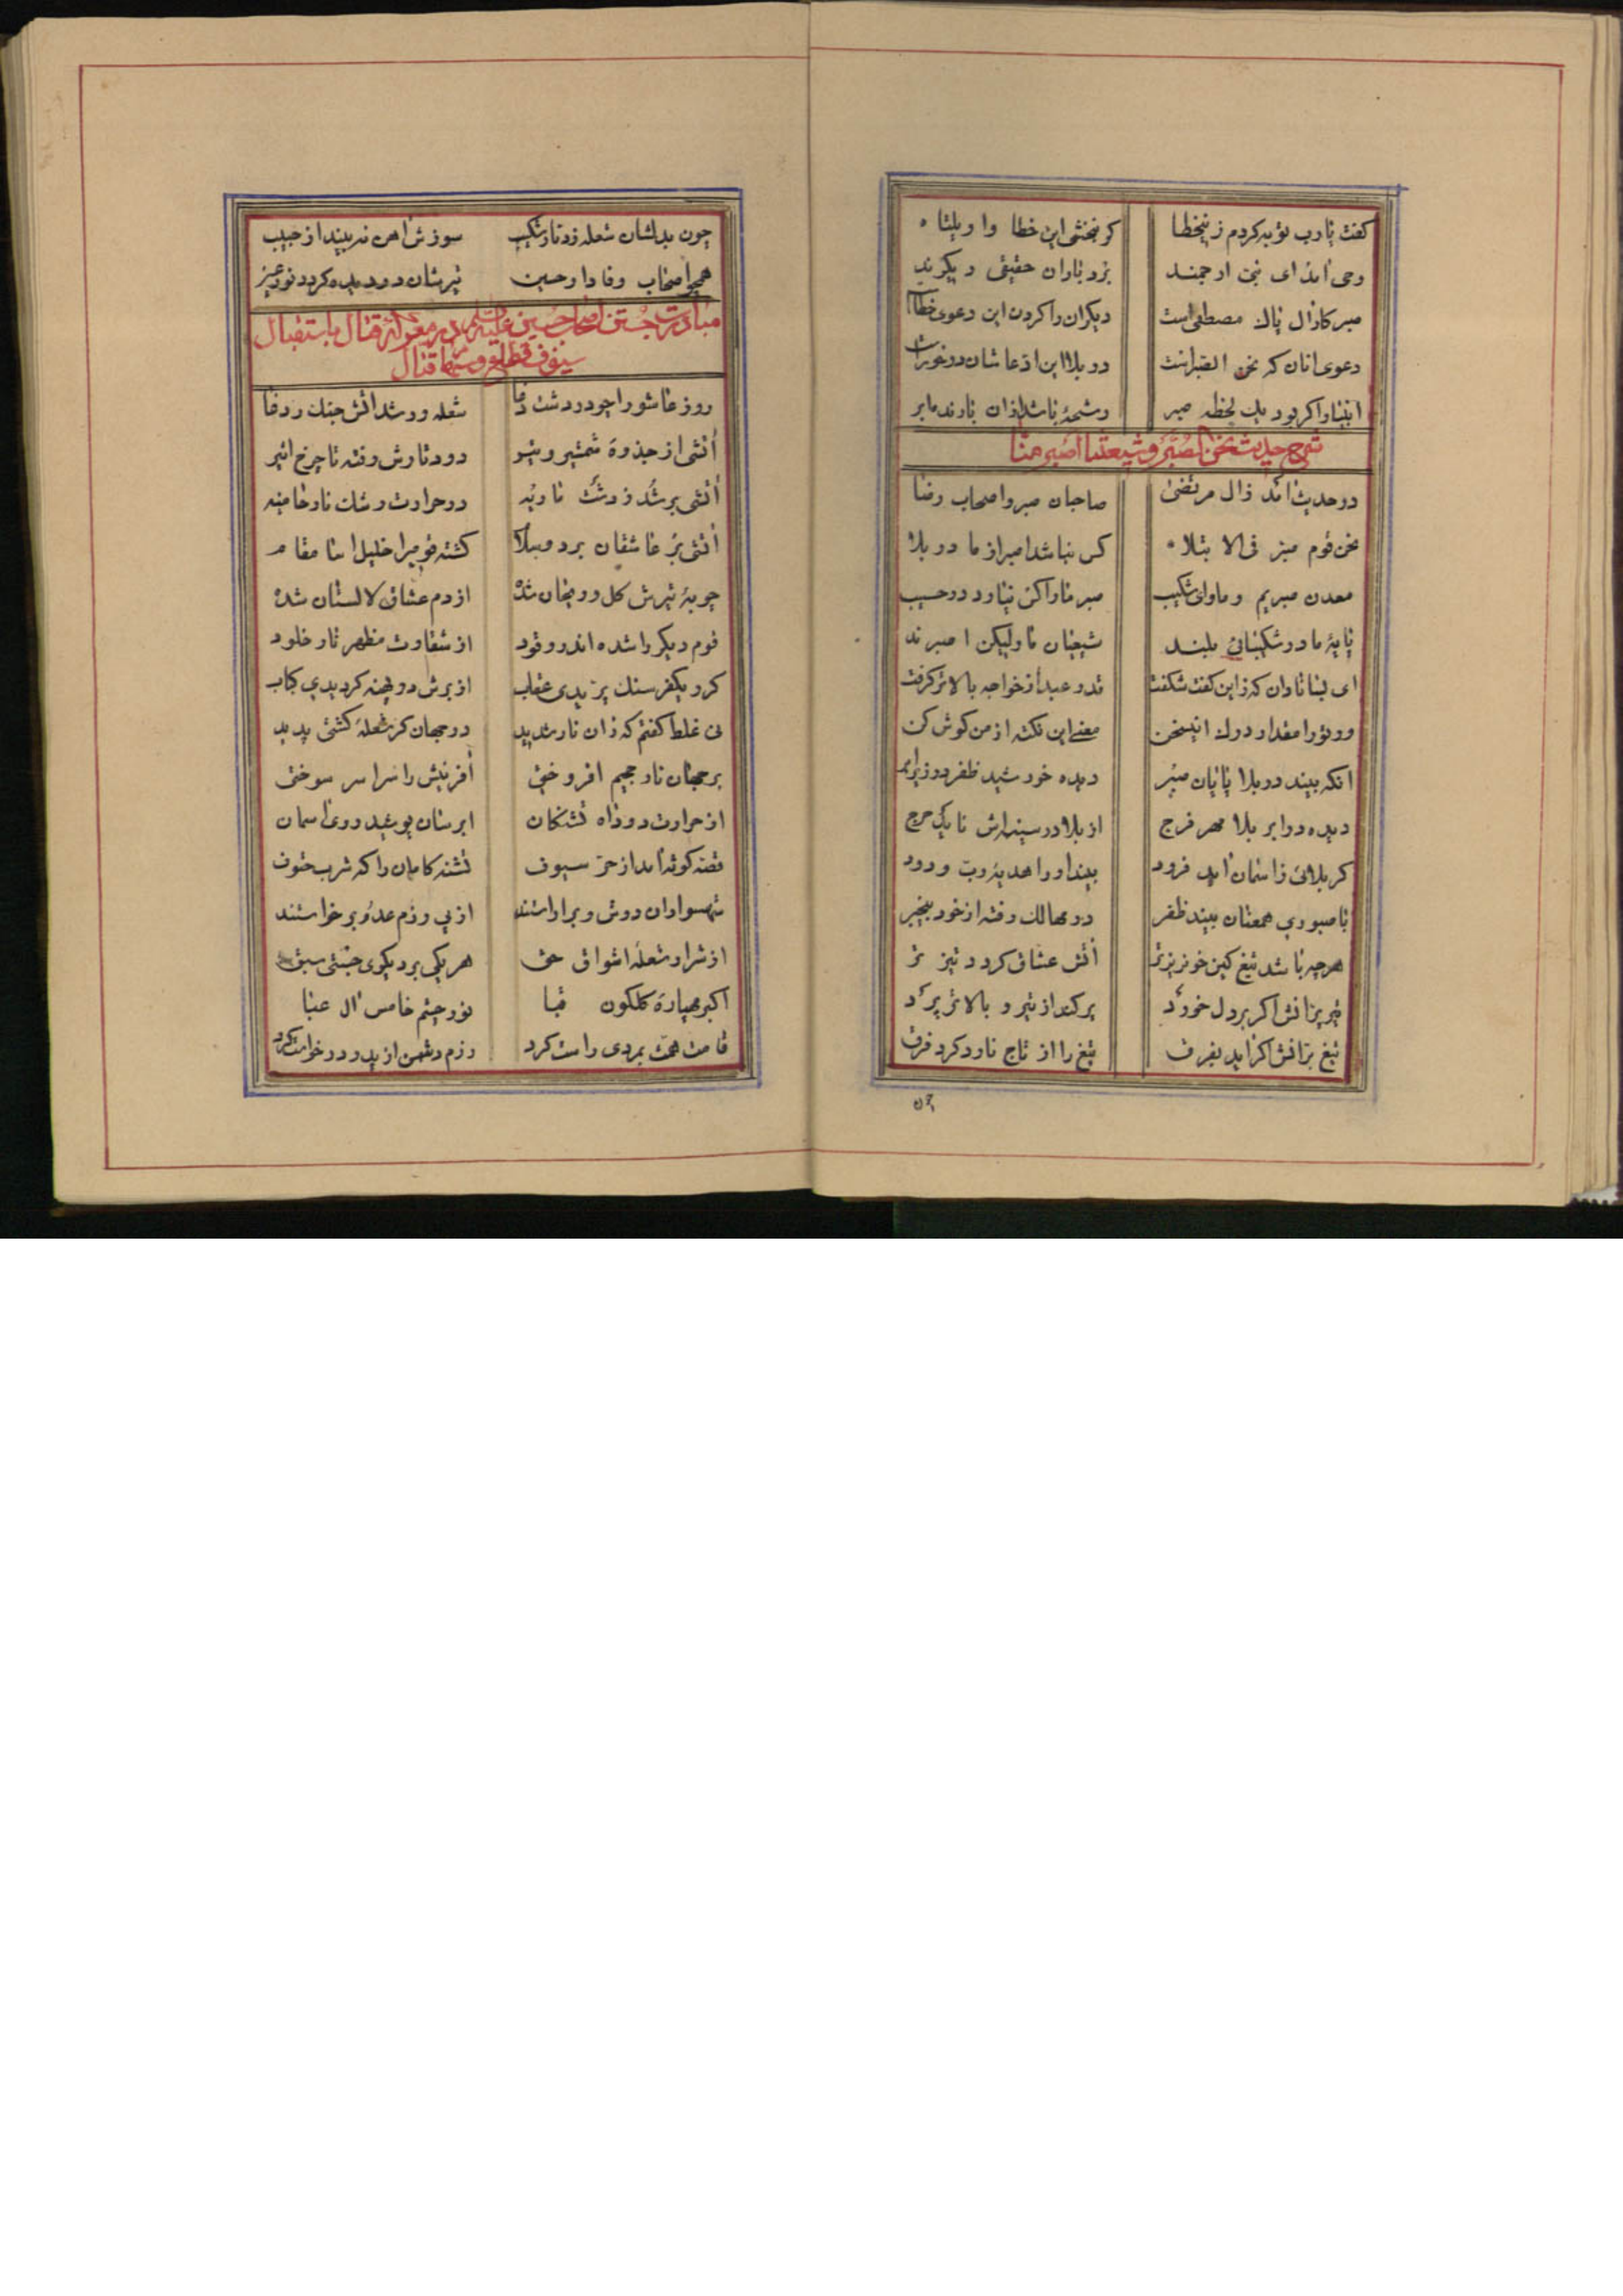 كفت يارب توبه كردم زينخطا كر نبخشى اين خطا وا ويلتاه
وحى امد اى نبى ارجمند بردباران حقيقى ديكرند
صبر كار ال پاك مصطفى است ديكران را كردن اين دعوى خطاست
دعوى انان كه نحن الصبر است در بلا اين ادعاشان در خور است
انبيا را كر بود يك لحظه صبر رشحهٔ باشد از ان بارنده ابر
شرح حديث نحن صبر و شيعتنا اصبر منا
در حديث امد ز ال مرتضى صاحبان صبر و اصحاب رضا
نحن قوم صبر فى الابتلاه كس نباشد اصبر از ما در بلا
معدن صبريم و ماواى شكيب صبر ما را كس نيارد در حسيب
پايهٔ ما در شكيبائى بلند شيعيان ما وليكن اصبرند
اى بسا نادان كه زاين كفت شكفت قدر عبد از خواجه بالاتر كرفت
ور تو را مقدار درك اين سخن معنى اين نكته از من كوش كن
انكه بيند در بلا پايان صبر ديده خورشيد ظفر در زير ابر
ديده در ابر بلا مهر فرج از بلا در سينه‌اش نايد حرج
كر بلائى ز اسمان ايد فرود بيند او را هديهٔ رب ودود
با صبورى همعنان بيند ظفر در مهالك رفته از خود بيخبر
هر چه باشد تيغ كين خونريزتر اتش عشاق كردد تيز تر
تير پر انش اكر بر دل خورد پر كند از تير و بالاتر پرد
تيغ بر انش اكر ايد بفرق تيغ را از تاج نارد كرد فرق
چون بدلشان شعله زد نار شكيب سوزش اهن نه بيند از حبيب
همچو اصحاب وفادار حسين تيرشان در ديده كردد نور عين
مبادرت جستن اصحاب حسين عليه السلم در معركهٔ قتال باستقبال
سيوف و قتال
روز عاشورا چو در دشت وفا شعله ور شد اتش جنك و دغا
اتشى از جذوهٔ شمشير و تير دود تارش رفته تا چرخ اثير
اتشى بر شد ز دشت ناريه در حرارت رشك نار حاميه
اتشى بر عاشقان برد و سلام كشته قوميرا خليل اسا مقام
چوبهٔ تيرش كل و ريحان شده از دم عشاق لالستان شده
قوم ديكر را شده اندر وقود از شقاوت مظهر نار خلود
كر و يكفرسنك پريدى عقاب از برش در لحظه كرديدى كباب
نى غلط كفتم كه زان نار شديد در جهان كر شعلهٔ كشتى پديد
بر جهان نار جحيم افروختى افرينش را سراسر سوختى
از حرارت دود اه تشنكان ابرسان پوشيد روى اسمان
قصه كوته امد از حر سيوف تشنه كامان را كه شرب حتوف
شهسواران دوش و بر اراستند از پى رزم عدو برخواستند
از شرار شعلهٔ اشواق حق هر يكى بر ديكرى جستى سبق
اكبر مهپارهٔ كلكون قبا نور چشم خامس ال عبا
قامت همت بمردى راست كرد رزم دشمن از پدر درخواست كرد